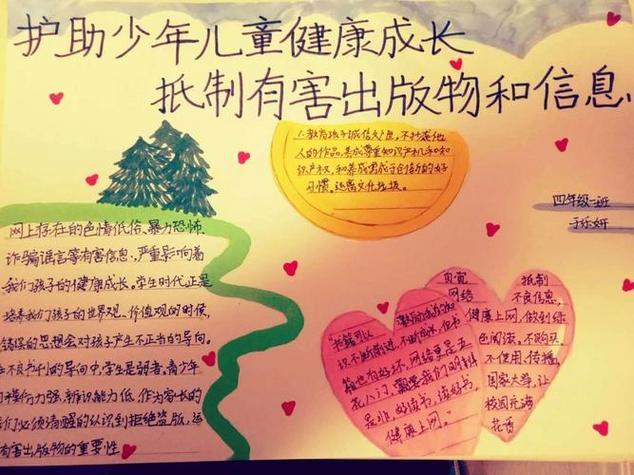 护助少年儿童健康成长
抵制有害出版物和信息
1、教育孩子诚信文明,不抄袭他
人的作品,养成尊重知识产
识产权,和养成遵守
习惯。远离文化垃圾。
四年级一班
于乐妍
网上存在的色情低俗、暴力恐怖、
诈骗谣言等有害信息,严重影响着
我们孩子的健康成长。学生时代正是
培养我们孩子的世界观、价值观的时候,
错误的思想会对孩子产生不正当的导向。
在不良书刊的导向中,学生是弱者,青少年
模仿力强,辨识能力低,作为家长的
我们必须清醒的认识到拒绝盗版、远
有害出版物的重要性
书籍可以
识不断前进,不断成长,但书
籍也有好坏,网络更是五
花八门,
是非,好读书,读好书,
健康上网。
自觉
网络
健康上网,做到绿
色阅读,不购买、
不使用、传播,
抵制
不良信息,
国家大学,让
校园充满
花香